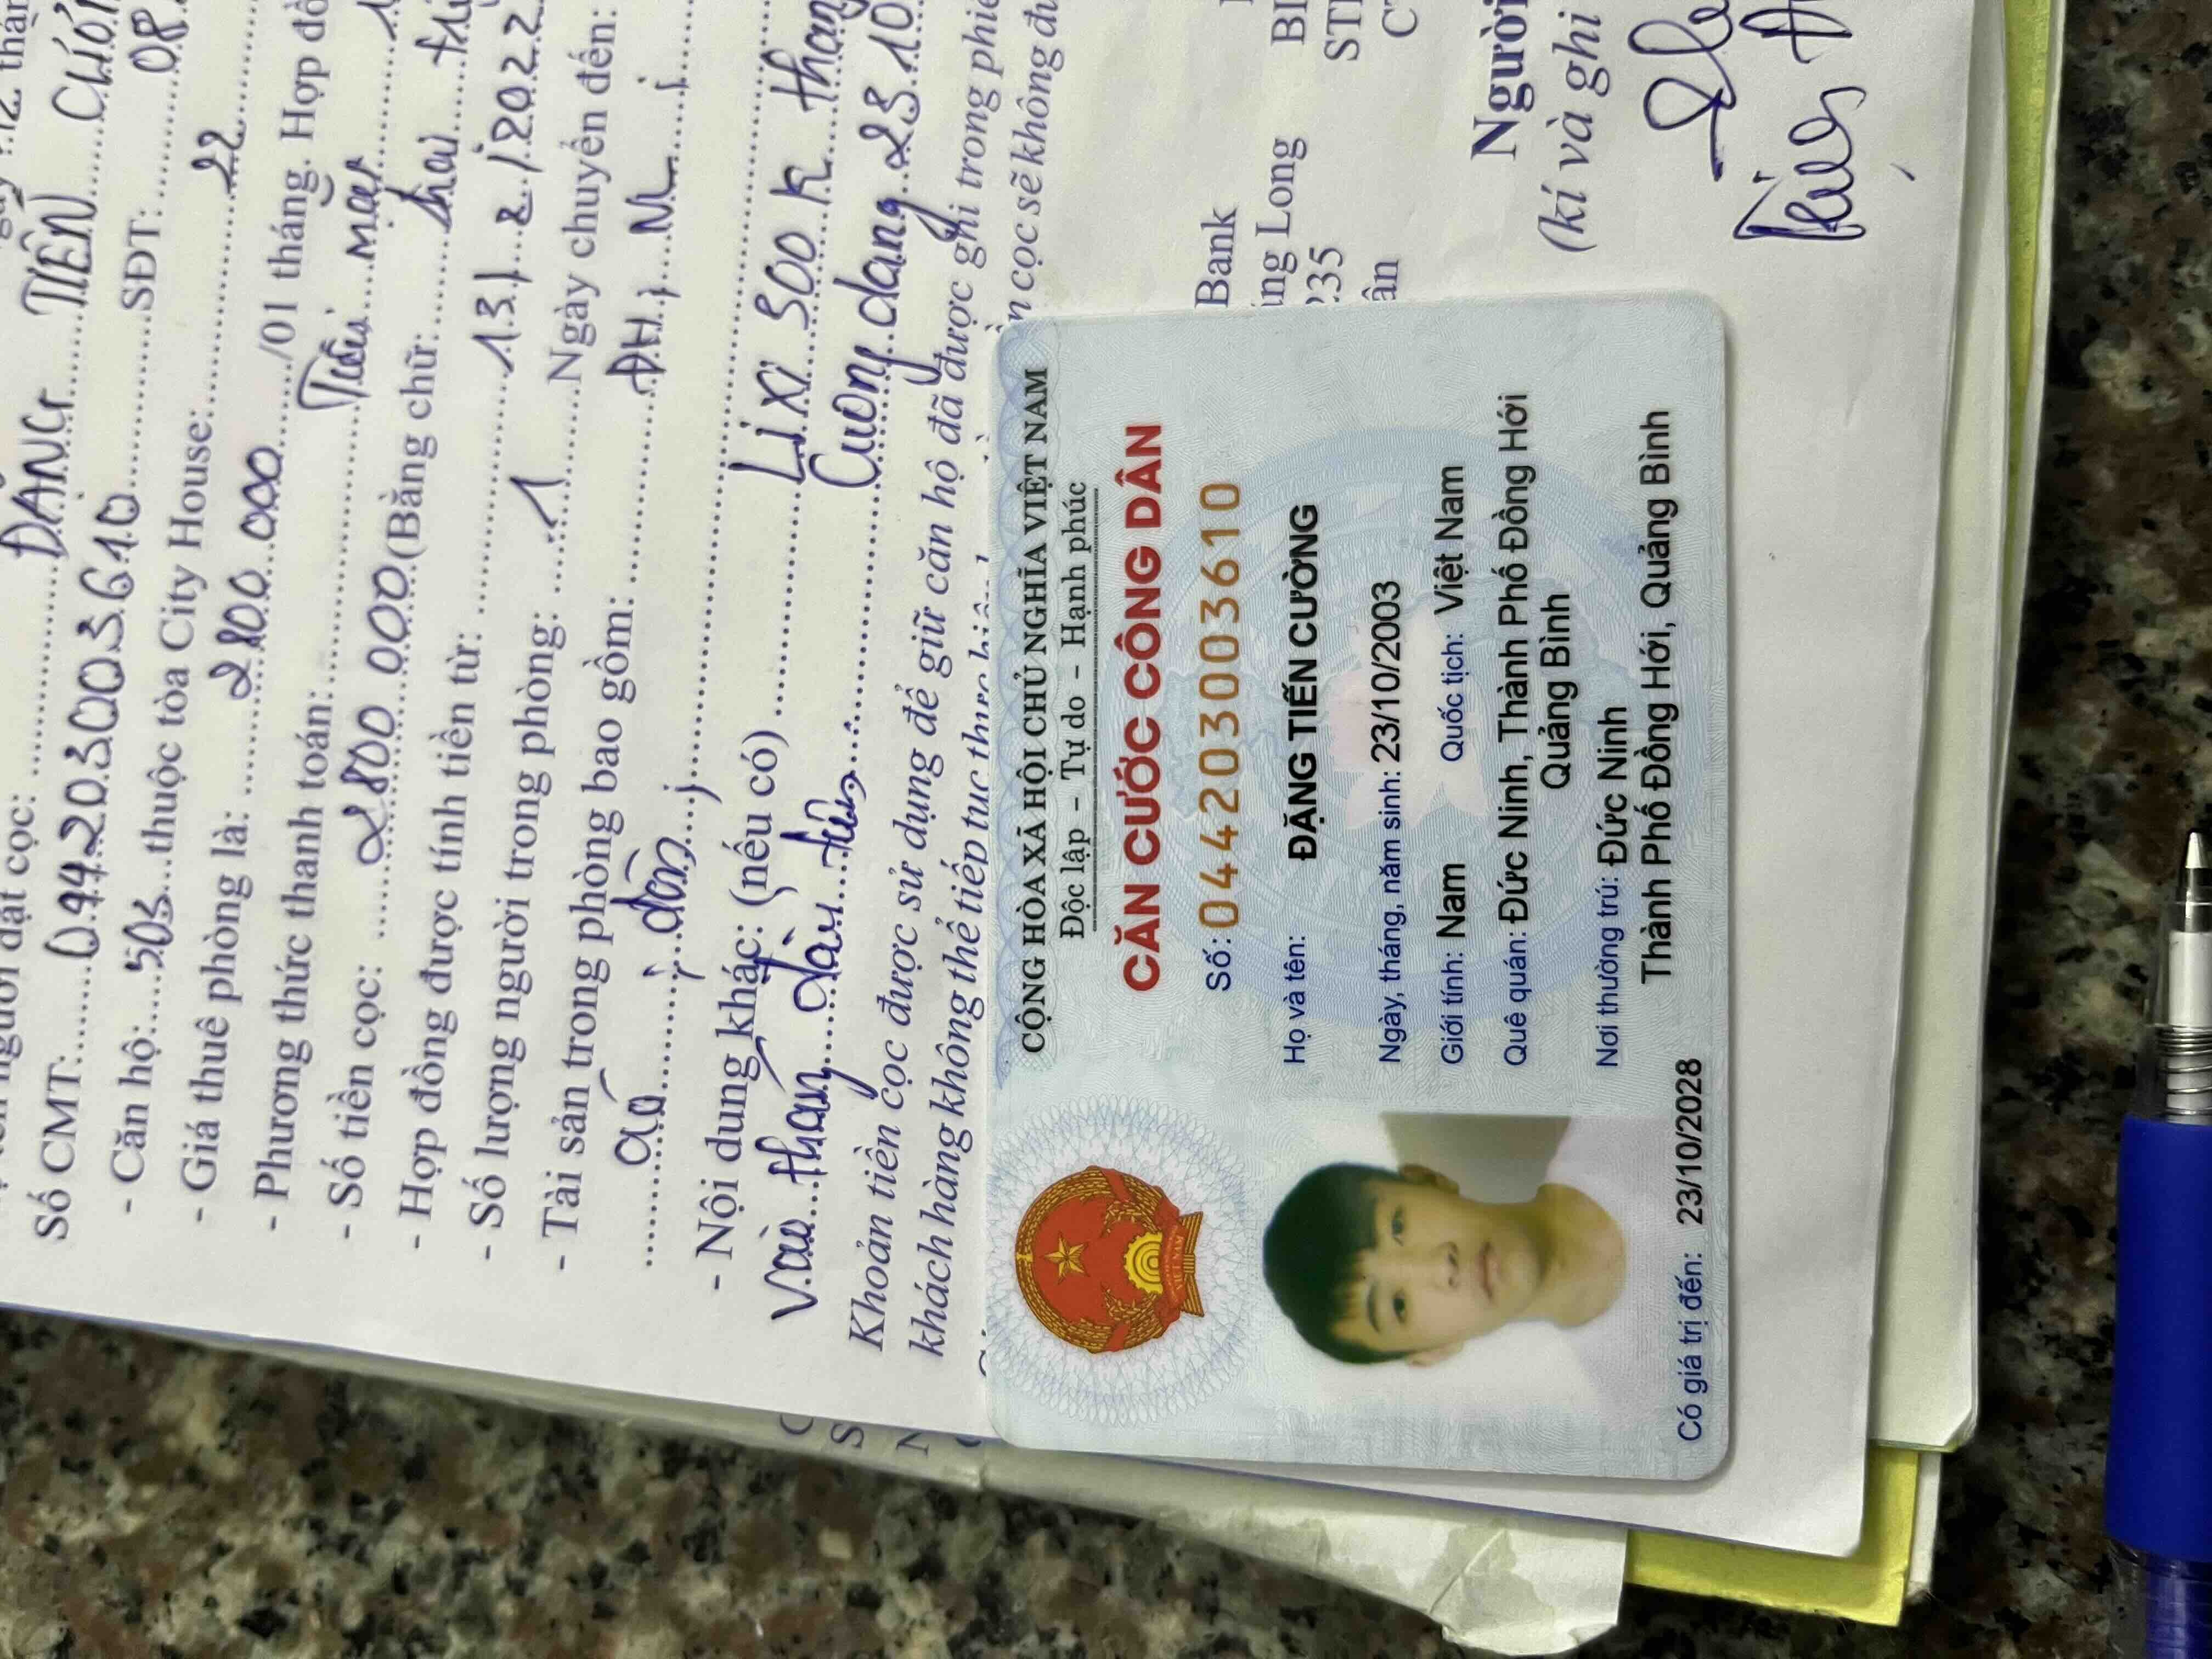 người đặt cọc: ĐẶNG TIẾN CƯỜN
Số CMT: 044203003610 SĐT: 08
- Căn hộ: 503 thuộc tòa City House: 22
- Giá thuê phòng là: 2 800 000 /01 tháng. Hợp đồ
- Phương thức thanh toán: Tiền mặt 1
- Số tiền cọc: 2 800 000 (Bằng chữ: hai
- Hợp đồng được tính tiền từ: 13 / 2 / 2022
- Số lượng người trong phòng: 1 Ngày chuyển đến:
- Tài sản trong phòng bao gồm: ĐH, NL,
- Nội dung khác: (nếu có) Lì xì 300 k tháng
vào tháng đầu tiên Cường dang 23 10
Khoản tiền cọc được sử dụng để giữ căn hộ đã được ghi trong phiế
khách hàng không thể tiếp tục thực n cọc sẽ không đư
Bank
ng Long BI
235 STI
ân
Người
(kí và ghi
CỘNG HÒA XÃ HỘI CHỦ NGHĨA VIỆT NAM
Độc lập - Tự do - Hạnh phúc
CĂN CƯỚC CÔNG DÂN
Số: 044203003610
Họ và tên: ĐẶNG TIẾN CƯỜNG
Ngày, tháng, năm sinh: 23/10/2003
Giới tính: Nam Quốc tịch: Việt Nam
Quê quán: Đức Ninh, Thành Phố Đồng Hới
Quảng Bình
Nơi thường trú: Đức Ninh
Thành Phố Đồng Hới, Quảng Bình
Có giá trị đến: 23/10/2028